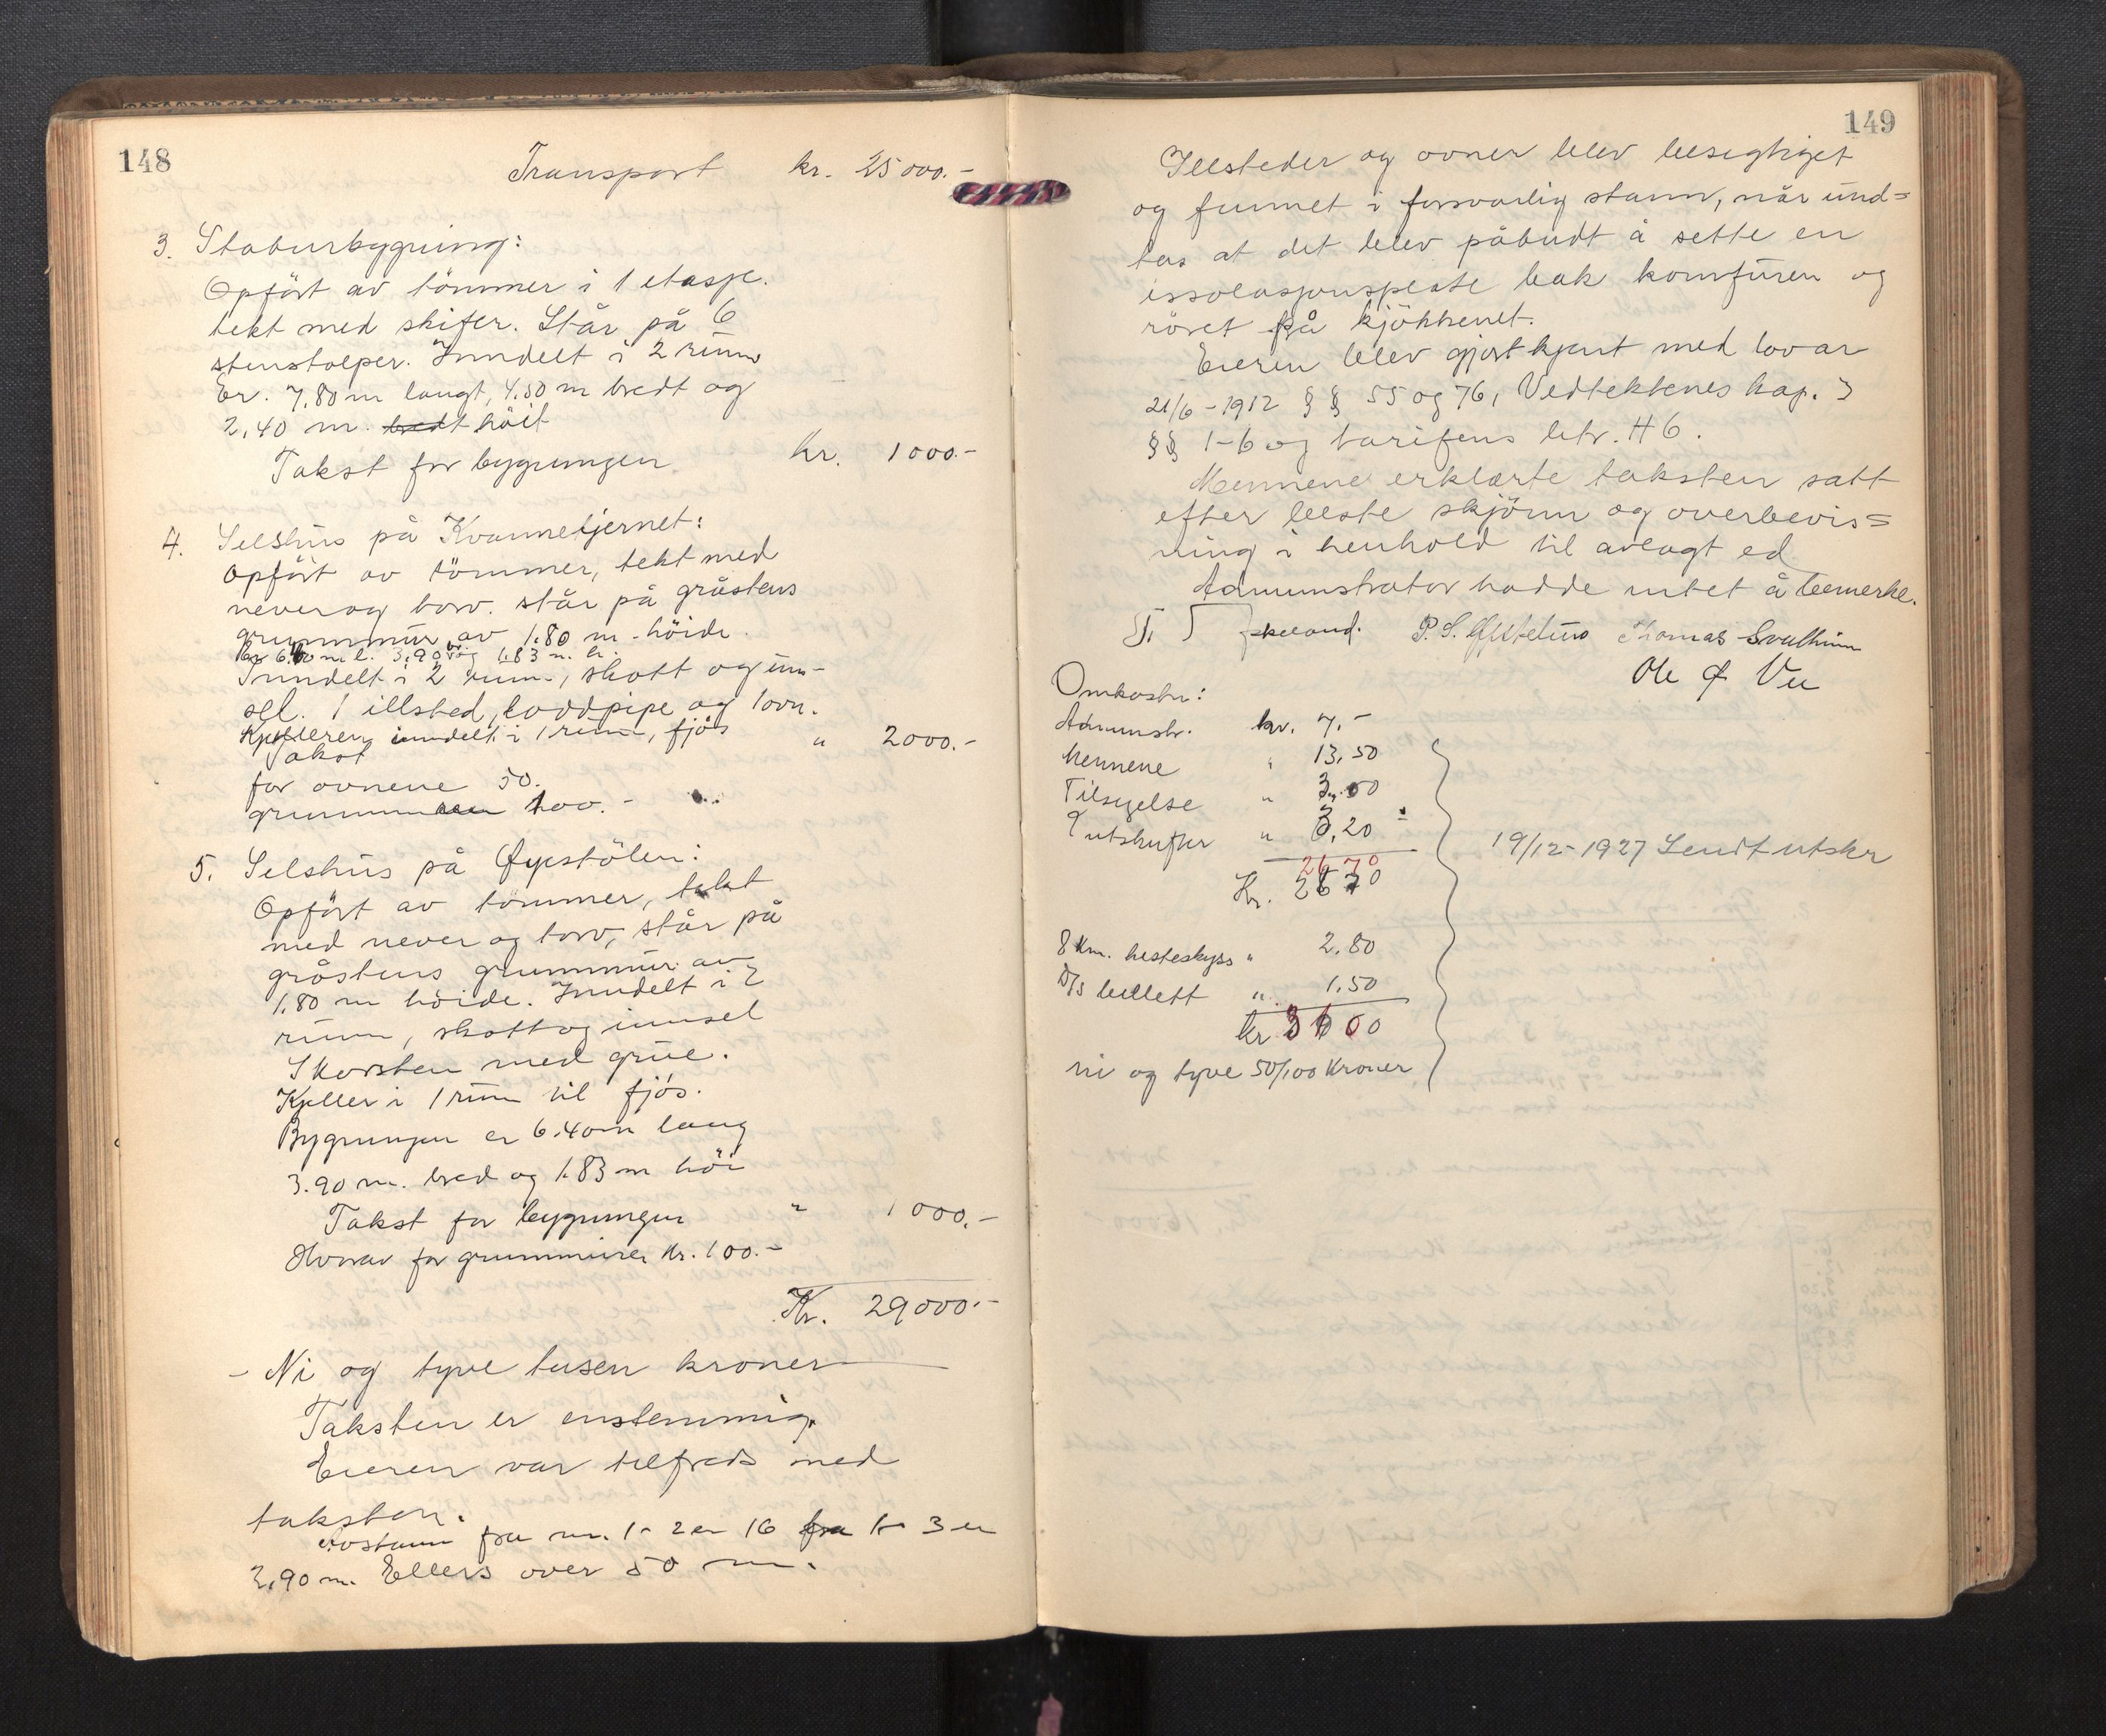 148
Transport kr. 25000.-
3. Staburbygning:
Opfört av tömmer i 1 etasje.
tekt med skifer. Står på 6
stenstolper. Inndelt i 2 rum
Er. 7,80 m langt, 4.50 m bredt og
2,40 m. bredt höit
Takst for bygningen kr. 1000.-
4. Selshus på Kvannetjernet:
Opfört av tömmer, tekt med
never og torv. står på gråstens
grunnmur av 1.80 m. höide.
Er 6.40 m l. 3,90 br. og 1,83 m. h.
Inndelt i 2 rum, skott og inn-
sel. 1 illsted, loddpipe og 1 ovn.
Kjelleren inndelt i 1 rum, fjös
Takst " 2000.-
for ovnene 50.
grunnmuren 100.-
5. Selshus på Øyestölen:
Opfört av tömmer, tekt
med never og torv, står på
gråstens grunnmur av
1.80 m höide. Inndelt i 2
rum, skott og innsel
Skorsten med grue.
Kjeller i 1 rum til fjós.
Bygningen er 6.40 m lang
3.90 m. bred og 1.83 m höi
Takst for bygningen " 1000.-
Hvorav for grunnmuren Kr. 100.-
Kr. 29000.-
- Ni og tyve tusen kroner
Taksten er enstemmig.
Eieren var tilfreds med
taksten.
Avstann fra nr. 1 - 2 er 16 fra 1 - 3 er
2,90 m. Ellers over 50 m.
149
Illsteder og ovner blev besigtiget
og funnet i forsvarlig stann, når und=
tas at det blev påbudt å sette en
issolasjonsplate bak komfüren og
röret på kjökkenet.
Eieren blev gjort kjent med lov av
21/6-1912 §§ 55 og 76, Vedtektenes kap. 3
§§ 1-6 og tarifens litr. H 6.
Mennene erklærte taksten satt
efter beste skjönn og overbevis=
ning i henhold til avlagt ed
Administrator hadde intet å bemerke.
P. S. Thomas
Ole Ø Vee
Omkostn:
Administr. kr. 7.-
Mennene " 13,50
Tilsigelse " 3.00
utskrifter " 3,20
2670
Kr. 2670
8 Km. hesteskyss " 2.80
D/s billett " 1.50
kr 3100
ni og tyve 50/100 Kroner
19/12-1927 Sendt utskr